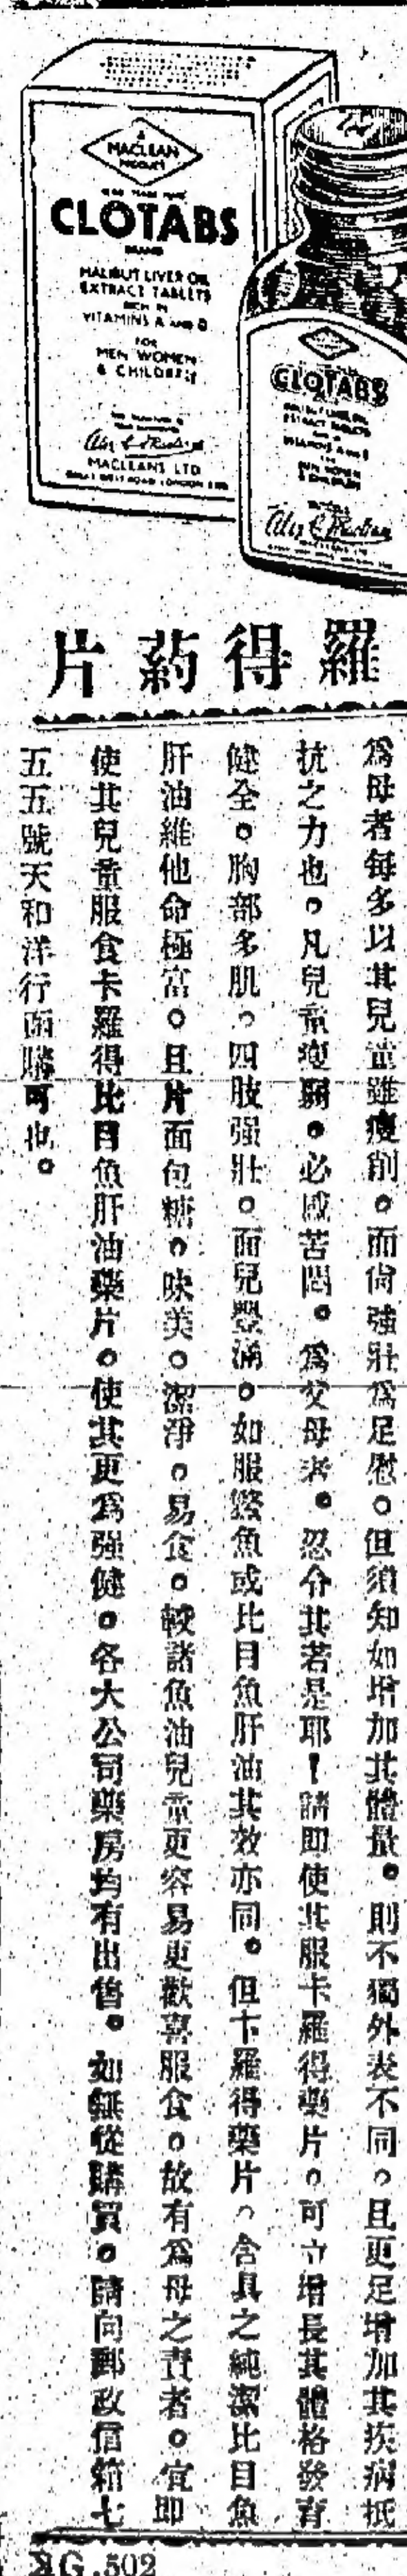 A
MACLEAN
PRODUCT
CLOTABS
BRAND
HALIBUT LIVER OIL
EXTRACT TABLETS
RICH IN
VITAMINS A AND D
FOR
MEN WOMEN
& CHILDREN
MACLEANS LTD
GREAT WEST ROAD LONDON
CLOTABS
羅得葯片
爲母者每多以其兒童雖瘦削。而尙強壯爲足慰。但須知如增加其體量。則不獨外表不同。且更足增加其疾病抵
抗之力也。凡兒童瘦弱。必感苦悶。爲父母者。忍令其若是耶！請即使其服卡羅得藥片。可立增長其體格發育
健全。胸部多肌。四肢强壯。面兒豐滿。如服鱉魚或比目魚肝油其效亦同。但卡羅得藥片。含具之純潔比目魚
肝油維他命極富。且片面包糖。味美。潔淨。易食。較諸魚油兒童更容易更歡喜服食。故有爲母之責者。宜即
使其兒童服食卡羅得比目魚肝油藥片。使其更爲强健。各大公司藥房均有出售。如無從購買。請向郵政信箱七
五五號天和洋行函購可也。
G.502